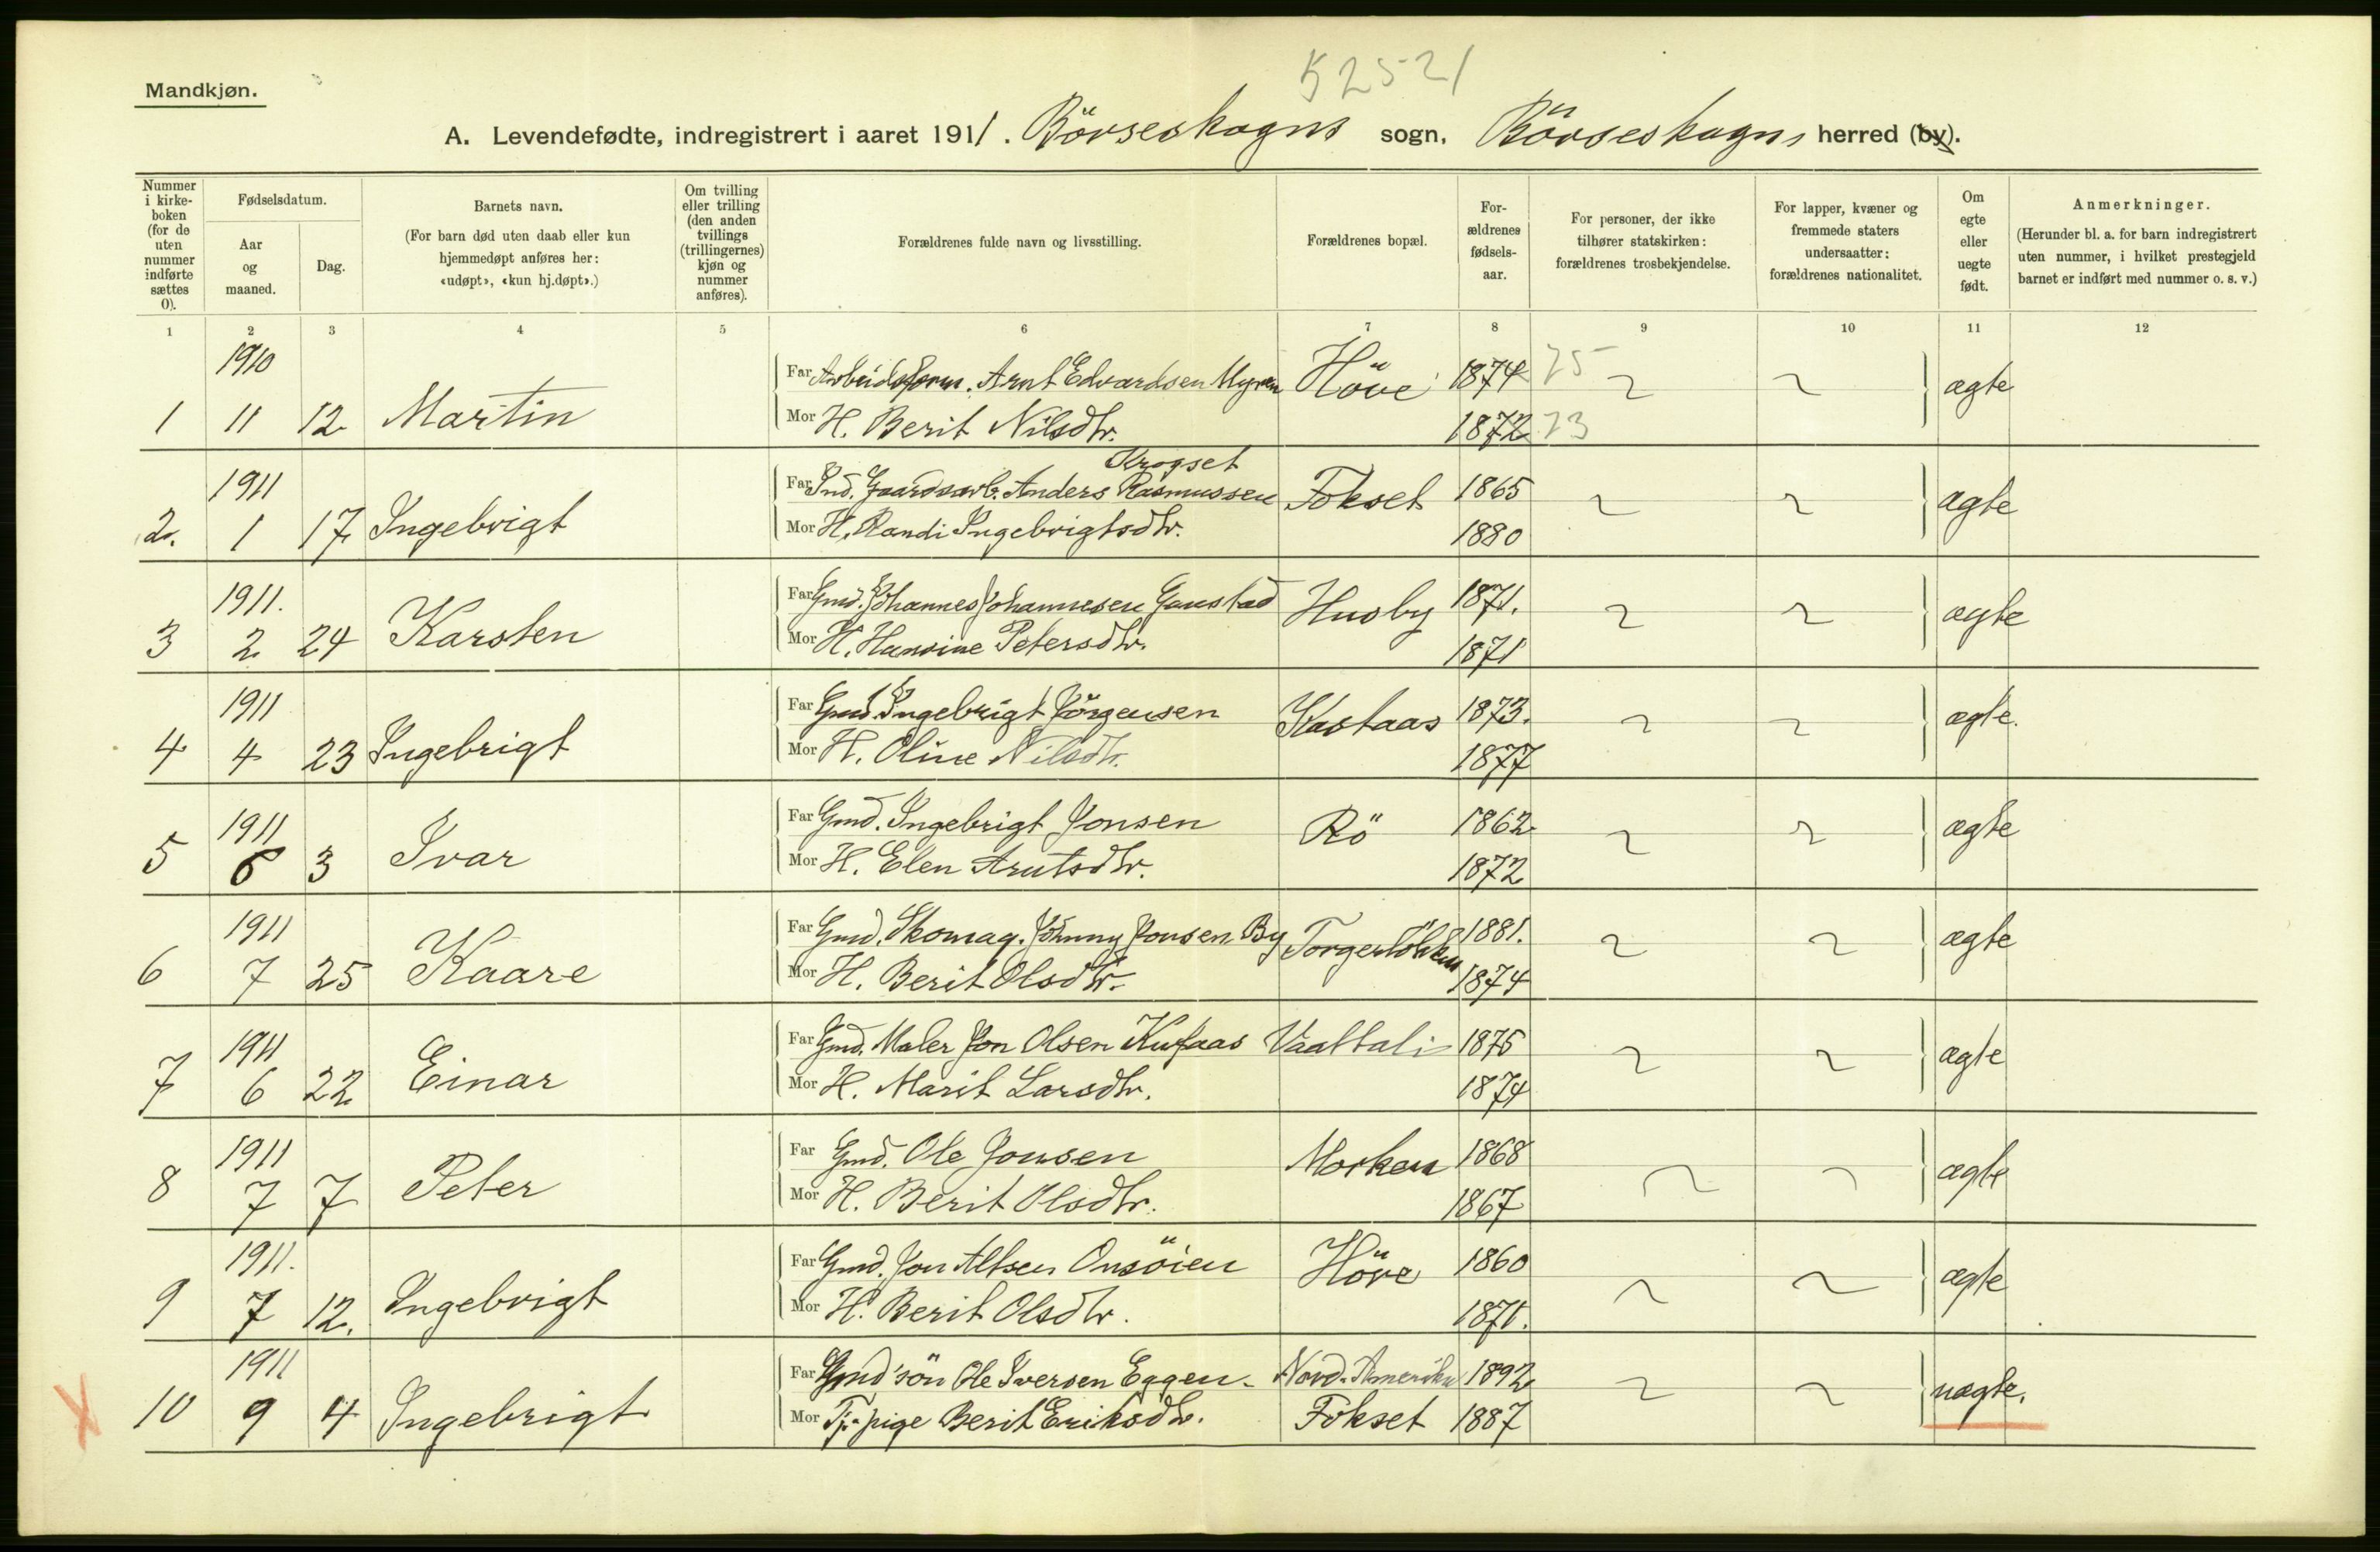 52521
Mandkjøn.
A. Levendefødte, indregistrert i aaret 1911. Börseskogns sogn, Börseskogns herred (by).
Nummer i kirkeboken (for de uten nummer indførte sættes 0).
Fødselsdatum.
Aar og maaned.
Dag.
Barnets navn.
(For barn død uten daab eller kun hjemmedøpt anføres her: «udøpt», «kun hj.døpt».)
Om tvilling eller trilling (den anden tvillings (trillingernes) kjøn og nummer anføres).
Forældrenes fulde navn og livsstilling.
Forældrenes bopæl.
Forældrenes fødselsaar.
For personer, der ikke tilhører statskirken: forældrenes trosbekjendelse.
For lapper, kvæner og fremmede staters undersaatter: forældrenes nationalitet.
Om egte eller uegte født.
Anmerkninger.
(Herunder bl. a. for barn indregistrert uten nummer, i hvilket prestegjeld barnet er indført med nummer o. s. v.)
1 2 3 4 5 6 7 8 9 10 11 12
1910
Far Arbeidsform. Arnt Edvardsen Myren Höve 1874 75 ægte
1 11 12. Martin
Mor H. Berit Nilsdtr. 1872 73
Krogset
1911
Far Ind. Gaardsarb. Anders Rasmussen Fokset 1865 ægte
2. 1 17. Ingebrigt
Mor H. Randi Ingebrigtsdtr. 1880
1911.
Far Gmd. Johannes Johannesen Gaustad Husby 1871. ægte
3 2 24 Karsten
Mor H. Hansine Petersdtr. 1871
1911
Far Gmd. Ingebrigt Jörgensen 1873. ægte.
4 4 23 Ingebrigt
Mor H. Oline Nilsdtr. 1877
1911
Far Gmd. Ingebrigt Jonsen Rö 1862 ægte
5 6 3 Ivar
Mor H. Elen Arntsdtr. 1872
1911
Far Gmd. Skomag. Johnny Jonsen By 1881. ægte
6 7 25 Kaare
Mor H. Berit Olsdtr. 1874
1911
Far Gmd. Maler Jon Olsen Kufaas Vaattali 1875 ægte
7 6 22 Einar
Mor H. Marit Larsdtr. 1874
1911
Far Gmd. Ole Jonsen Morken 1868 ægte
8 7 7 Peter
Mor H. Berit Olsdtr. 1867
1911.
Far Gmd. Jon Altsen Onsöien Höve 1860 ægte
9 7 12. Ingebrigt
Mor H. Berit Olsdtr. 1871.
1911
Far Gmd'sön Ole Iversen Eggen. Nord-Amerika 1892 uægte.
X 10 9 4 Ingebrigt
Mor Tj.-pige Berit Eriksdtr. Fokset 1887